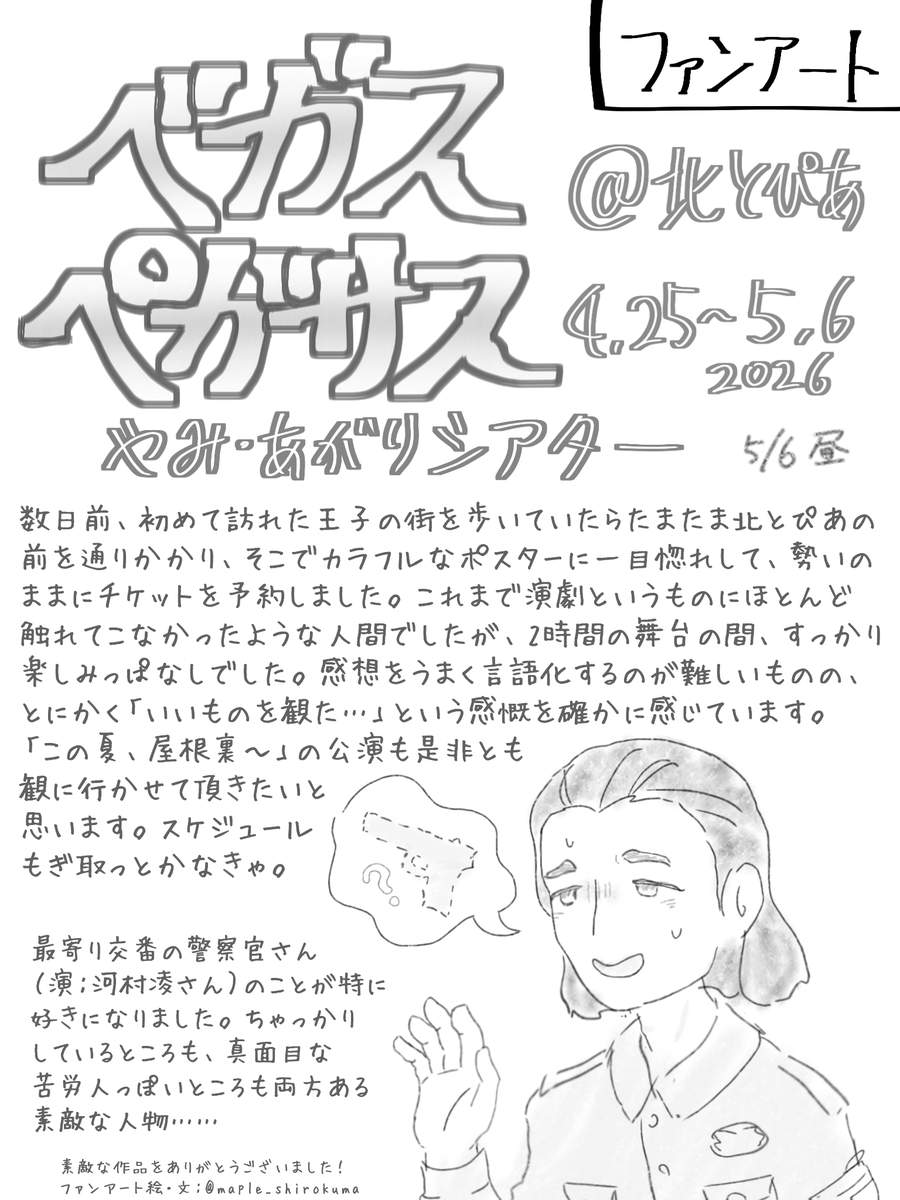 ファンアート
ベガス
ペガサス
@北とぴあ
4.25~5.6
2026
やみ・あがりシアター
5/6 昼
数日前、初めて訪れた王子の街を歩いていたらたまたま北とぴあの
前を通りかかり、そこでカラフルなポスターに一目惚れして、勢いの
ままにチケットを予約しました。これまで演劇というものにほとんど
触れてこなかったような人間でしたが、2時間の舞台の間、すっかり
楽しみっぱなしでした。感想をうまく言語化するのが難しいものの、
とにかく「いいものを観た…」という感慨を確かに感じています。
「この夏、屋根裏～」の公演も是非とも
観に行かせて頂きたいと
思います。スケジュール
もぎ取っとかなきゃ。
?
最寄り交番の警察官さん
(演;河村凌さん)のことが特に
好きになりました。ちゃっかり
しているところも、真面目な
苦労人っぽいところも両方ある
素敵な人物……
素敵な作品をありがとうございました!
ファンアート絵・文;@maple_shirokuma